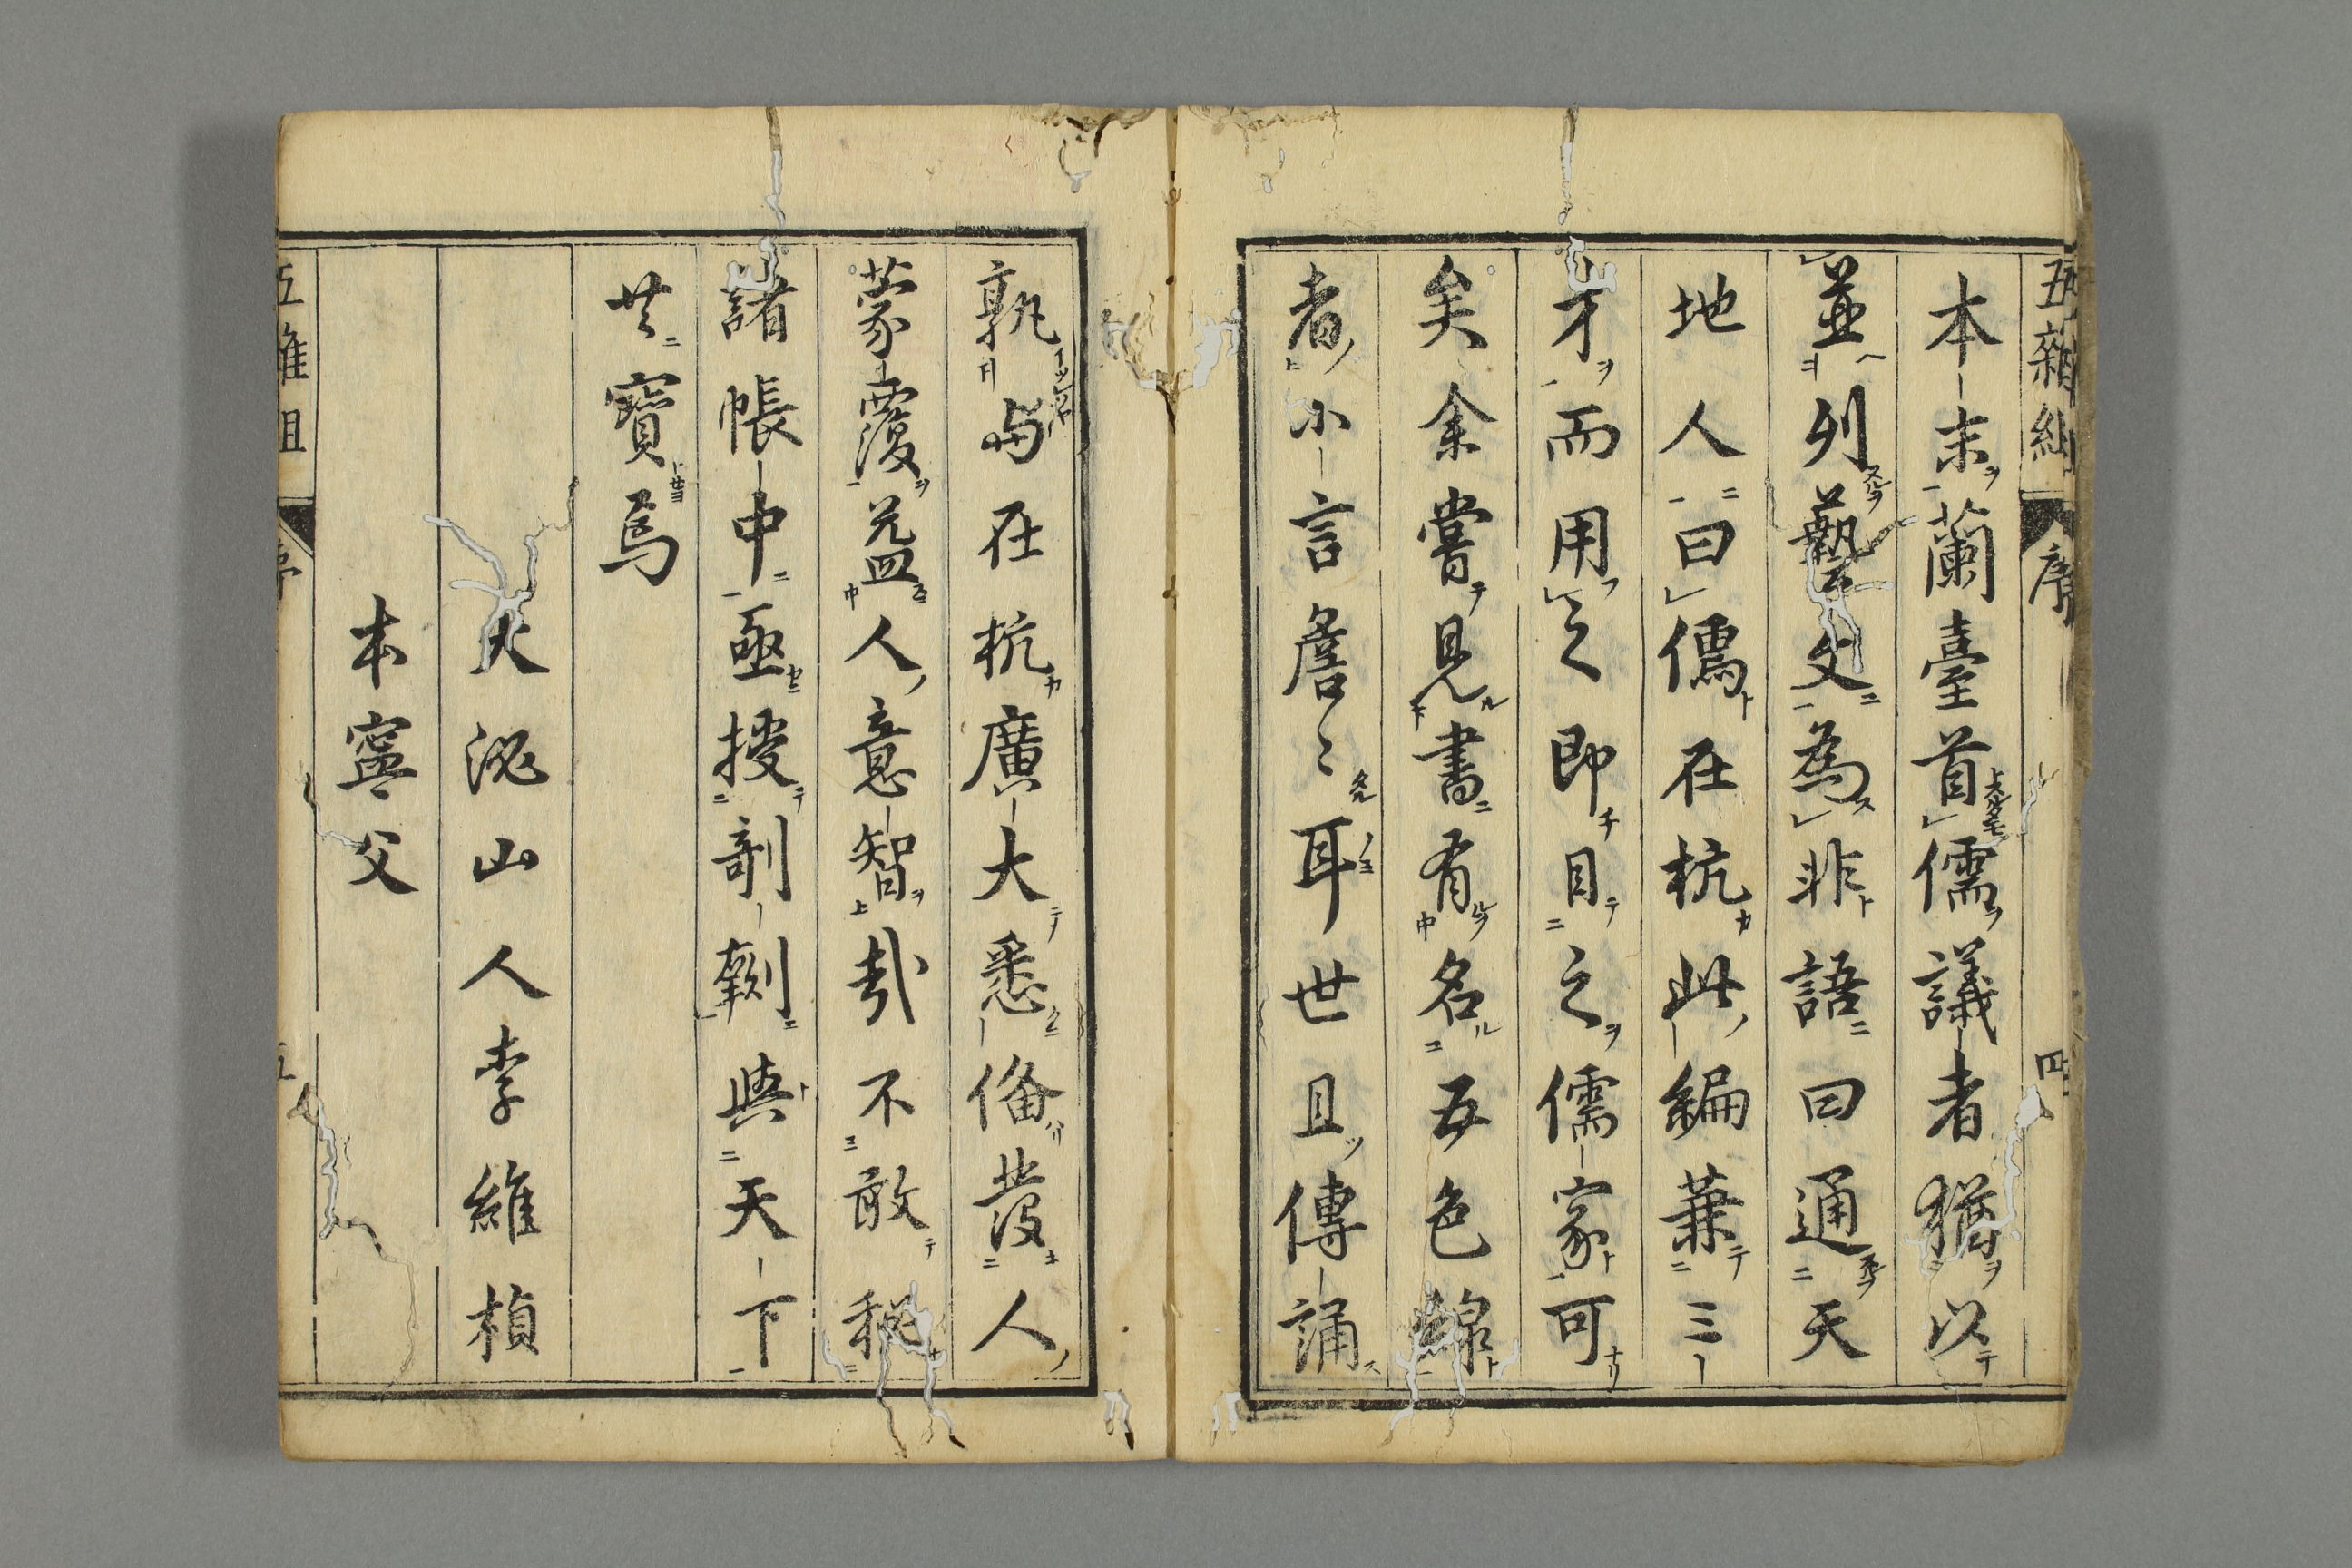 五雜組 序 四
本末蘭臺首儒議者猶以
並列藝文為非語曰通天
地人曰儒在杭此編兼三
才而用之即目之儒家可
矣余嘗見書有名五色線
者小言詹〻耳世且傳誦
孰與在杭廣大悉備發人
蒙覆益人意智哉不敢秘
諸帳中亟授剞劂與天下
共寶焉
大泌山人李維楨
本寧父
五雜組 序 五